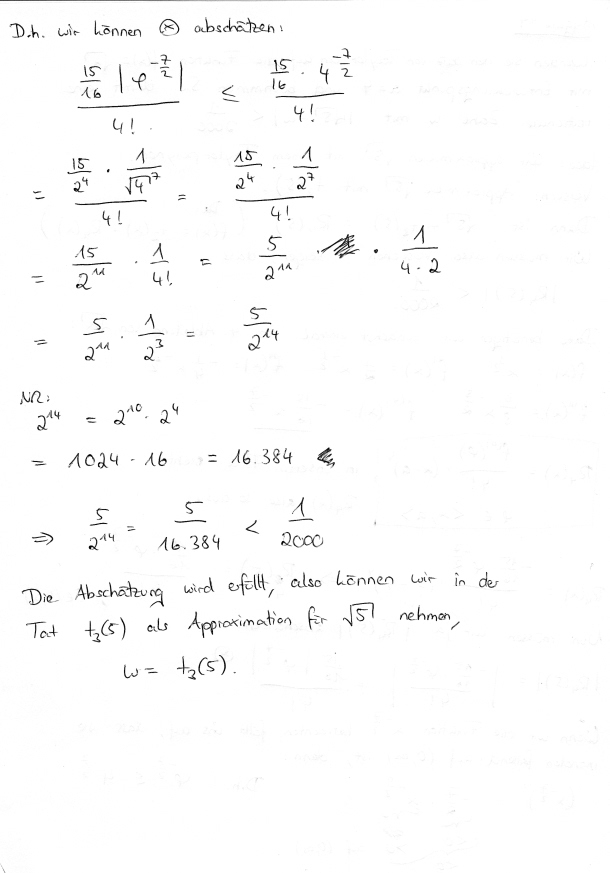 D.h. wir können ⊛ abschätzen:
\frac{\frac{15}{16} |φ^{-\frac{7}{2}}|}{4!} ≤ \frac{\frac{15}{16} · 4^{-\frac{7}{2}}}{4!}
= \frac{\frac{15}{2^4} · \frac{1}{\sqrt{4}^7}}{4!} = \frac{\frac{15}{2^4} · \frac{1}{2^7}}{4!}
= \frac{15}{2^{11}} · \frac{1}{4!} = \frac{5}{2^{11}} · \frac{1}{4·2}
= \frac{5}{2^{11}} · \frac{1}{2^3} = \frac{5}{2^{14}}
NR:
2^{14} = 2^{10} · 2^4
= 1024 · 16 = 16.384
⇒ \frac{5}{2^{14}} = \frac{5}{16.384} < \frac{1}{2000}
Die Abschätzung wird erfüllt, also können wir in der
Tat t_3(5) als Approximation für \sqrt{5} nehmen,
w = t_3(5).